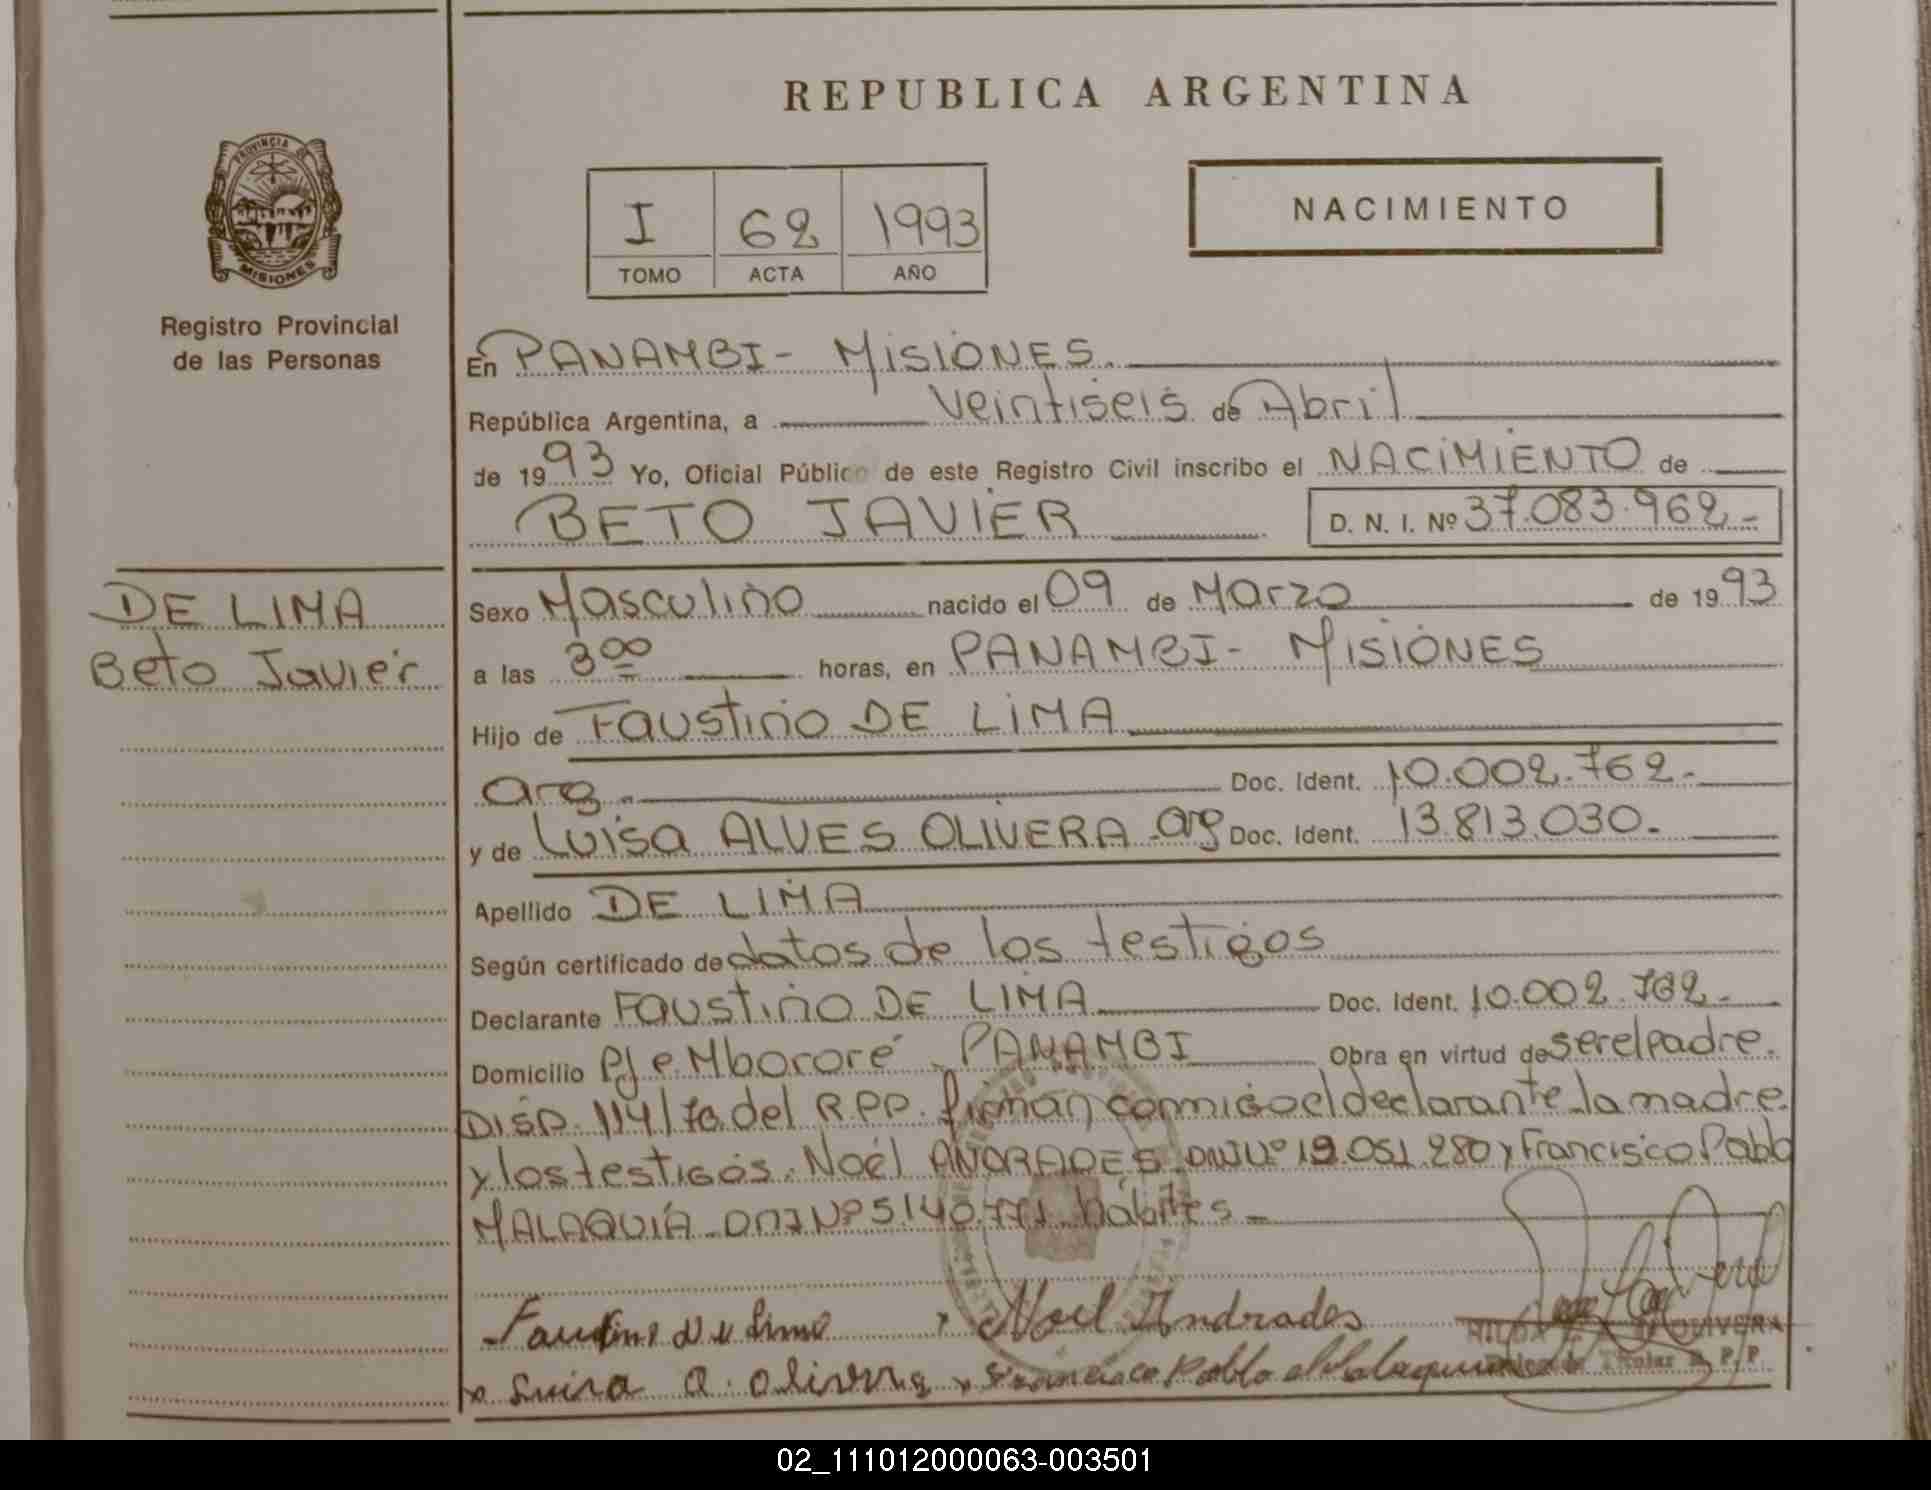 REPUBLICA ARGENTINA
PROVINCIA DE
MISIONES
Registro Provincial
de las Personas
I 62 1993
TOMO ACTA AÑO
NACIMIENTO
En PANAMBI - MISIONES.
República Argentina, a Veintiseis de Abril
de 1993 Yo, Oficial Público de este Registro Civil inscribo el NACIMIENTO de
BETO JAVIER D. N. I. Nº 37.083.962-
DE LIMA
Beto Javier
Sexo Masculino nacido el 09 de Marzo de 1993
a las 3 00 horas, en PANAMBI - MISIONES
Hijo de Faustino DE LIMA
arg. Doc. Ident. 10.002.762.-
y de Luisa ALVES OLIVERA - arg Doc. Ident. 13.813.030.-
Apellido DE LIMA
Según certificado de datos de los testigos
Declarante Faustino DE LIMA Doc. Ident. 10.002.762-
Domicilio Pje Mbororé - PANAMBI Obra en virtud de ser el padre.
DISP. 114/70 del R.P.P. firman conmigo el declarante la madre
y los testigos. Noél ANDRADES DNI Nº 19.051.280 y Francisco Pablo
MALAQUIA - DNI Nº 5.140.771 hábiles -
Noel Andrades
Luisa A. Olivera Francisco Pablo Malaquia
Titular R. P. P.
02_111012000063-003501